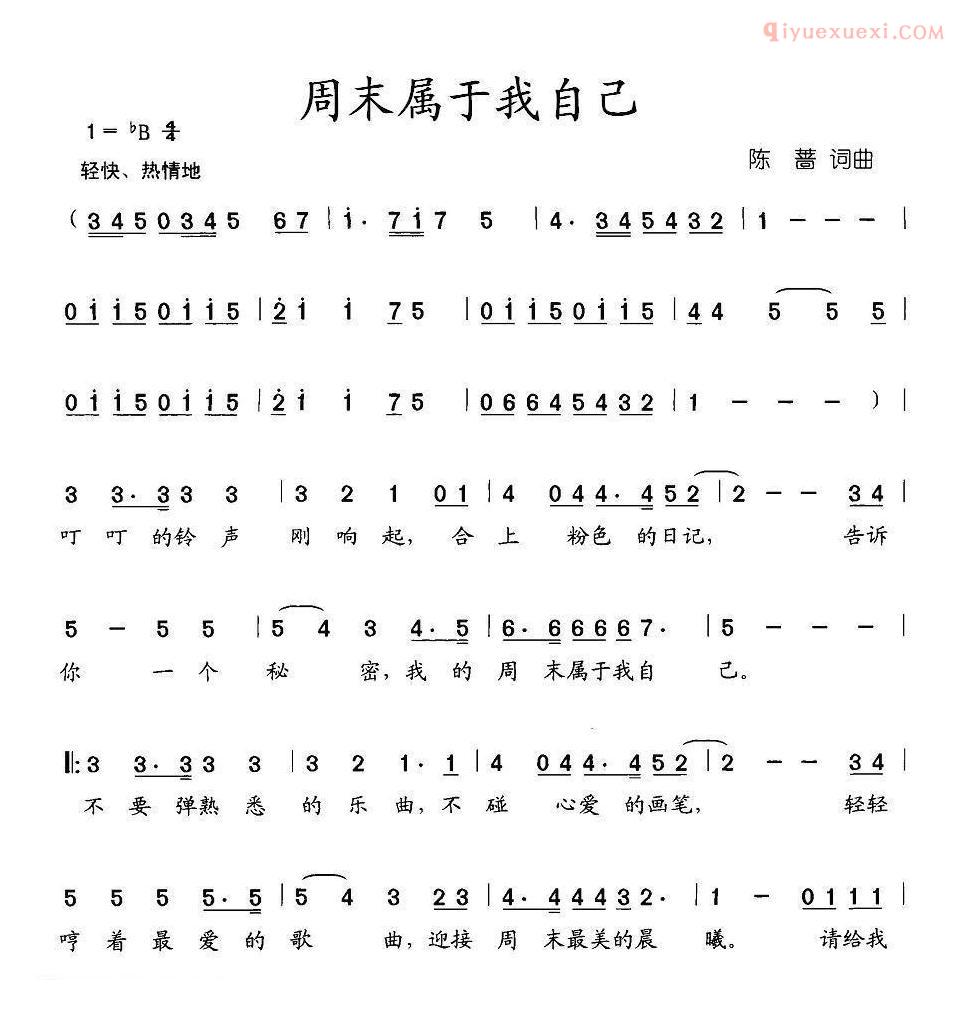 qiyuexuexi.COM
周末属于我自己
1 = ♭B 4/4
陈 蔷 词曲
轻快、热情地
( 3 4 5 0 3 4 5 6 7 | i · 7 i 7 5 | 4 · 3 4 5 4 3 2 | 1 - - - |
0 i i 5 0 i i 5 | 2 i i 7 5 | 0 i i 5 0 i i 5 | 4 4 5 5 5 |
0 i i 5 0 i i 5 | 2 i i 7 5 | 0 6 6 4 5 4 3 2 | 1 - - - ) |
3 3 · 3 3 3 | 3 2 1 0 1 | 4 0 4 4 · 4 5 2 | 2 - - 3 4 |
叮 叮 的铃 声 刚 响 起, 合 上 粉色 的日记, 告诉
5 - 5 5 | 5 4 3 4 · 5 | 6 · 6 6 6 6 6 7 · | 5 - - - |
你 一 个 秘 密, 我 的 周 末属于我自 己。
‖: 3 3 · 3 3 3 | 3 2 1 · 1 | 4 0 4 4 · 4 5 2 | 2 - - 3 4 |
不 要 弹熟 悉 的 乐 曲, 不 碰 心爱 的画笔, 轻轻
5 5 5 5 · 5 | 5 4 3 2 3 | 4 · 4 4 4 4 3 2 · | 1 - 0 1 1 1 |
哼 着 最 爱 的 歌 曲, 迎接 周 末最美的晨 曦。 请给我